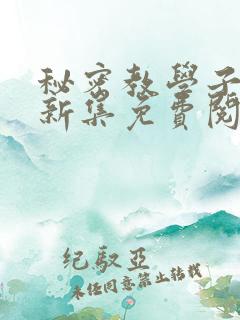 秘密教學子
新集免費閱
纪驭亞
未经同意禁止转载